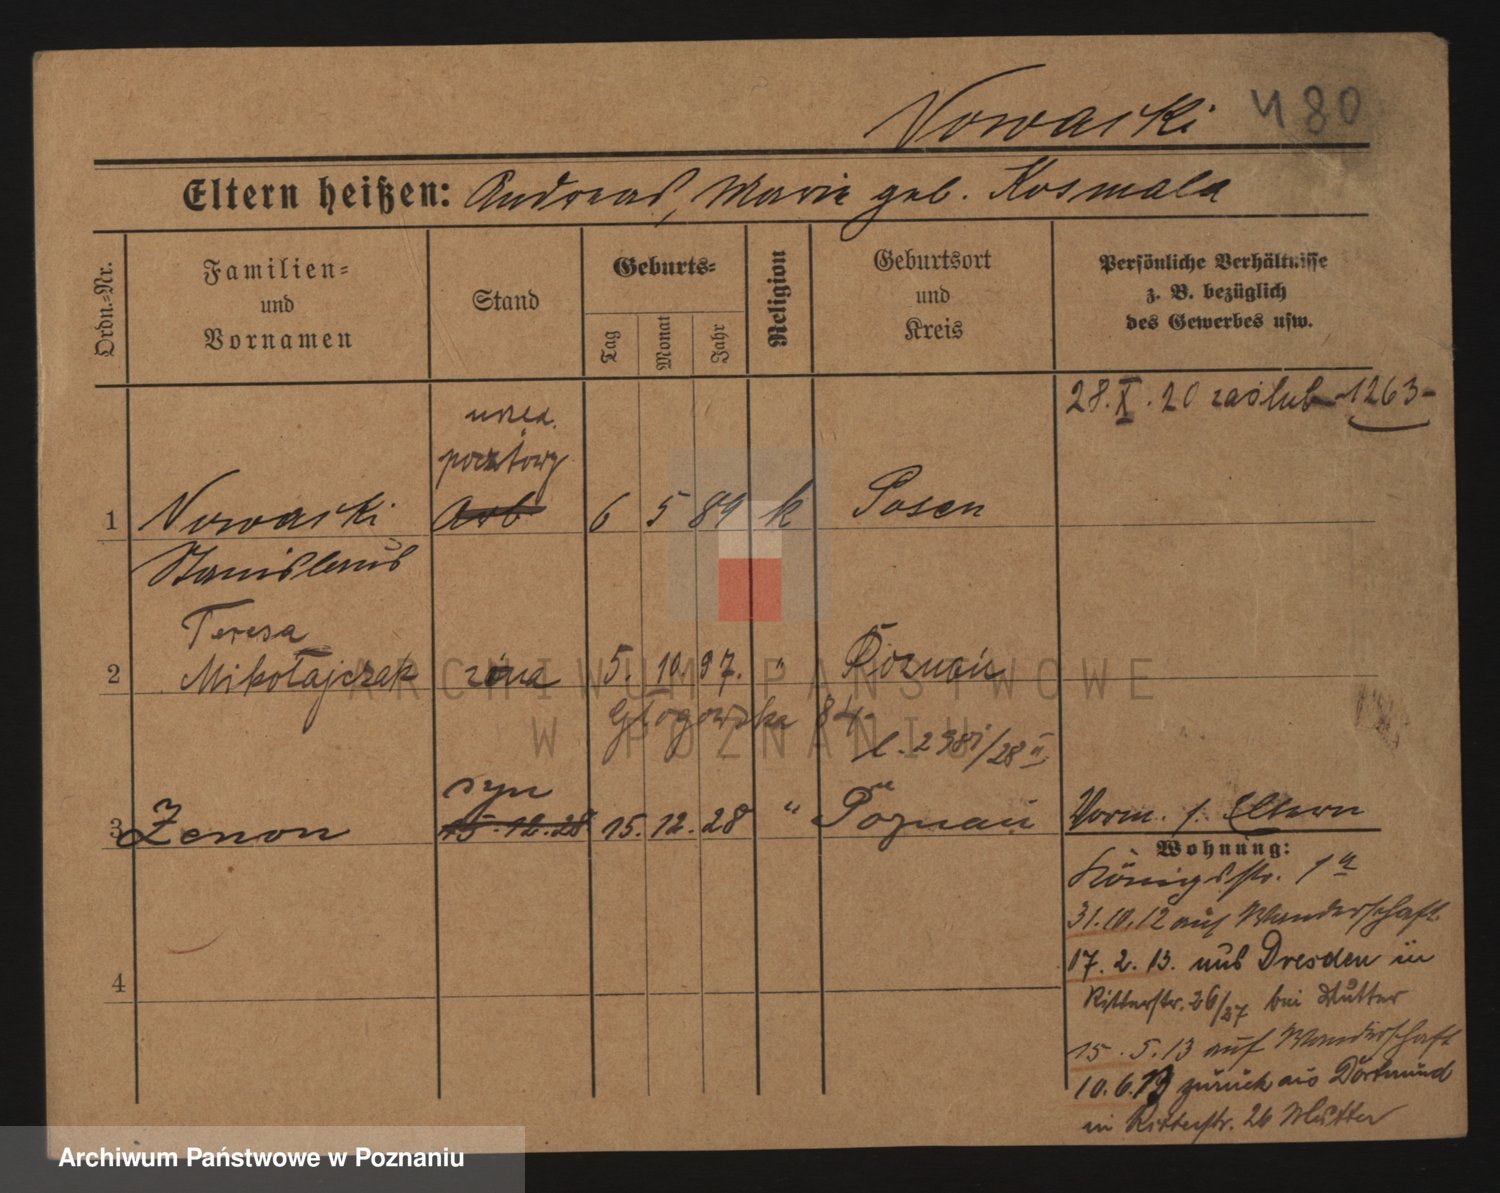 Nowacki 480
Eltern heißen: Andreas, Marie geb. Kosmala
Ordn.-Nr.
Familien-
und
Vornamen
Stand
Geburts-
Tag
Monat
Jahr
Religion
Geburtsort
und
Kreis
Persönliche Verhältnisse
z. B. bezüglich
des Gewerbes usw.
28.X.20 zaślub - 1263 -
urzęd.
pocztowy
1 Nowacki Arb 6 5 89 k Posen
Stanislaus
Teresa
2 Mikołajczak żona 5. 10. 97. " Poznań
Głogowska 84.
syn
3 Zenon 15.12.28 15.12.28 " Poznań Vorm. s. Eltern
Wohnung:
Königsstr. 1a
31.10.12 auf Wanderschaft
17.2.13. aus Dresden in
4
Ritterstr. 26/27 bei Mutter
15.5.13 auf Wanderschaft
10.6.13 zurück aus Dortmund
in Ritterstr. 26 Mutter
ARCHIWUM PAŃSTWOWE
W POZNANIU
Archiwum Państwowe w Poznaniu